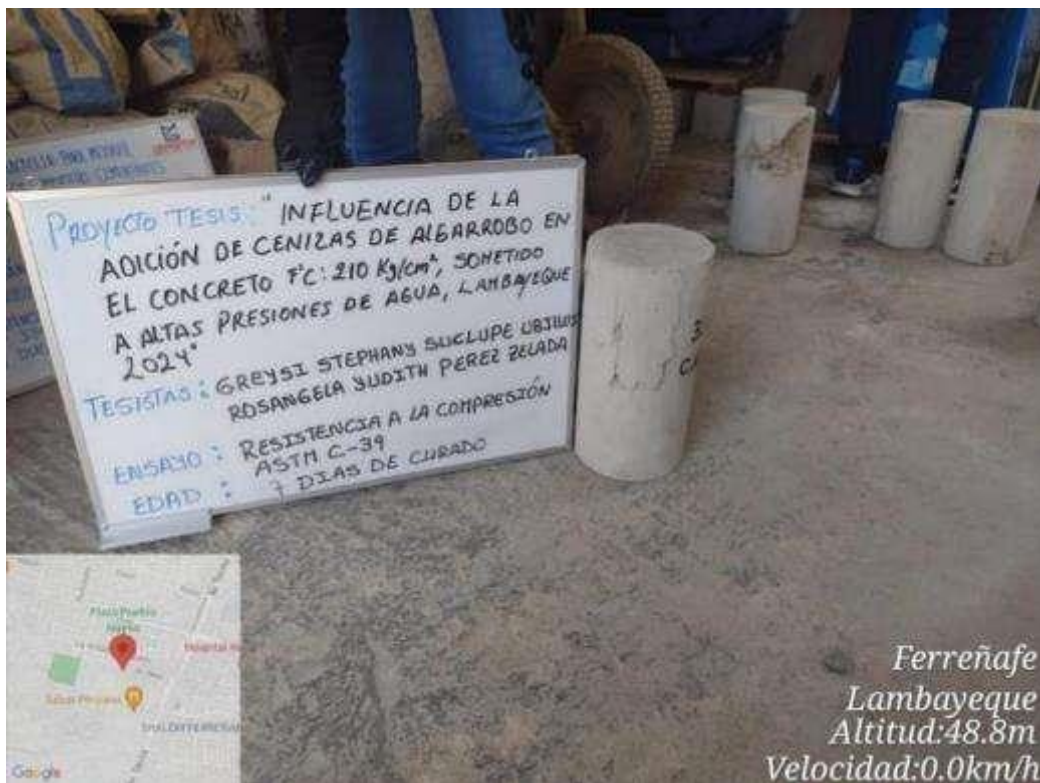 PROYECTO TESIS: "INFLUENCIA DE LA
ADICIÓN DE CENIZAS DE ALGARROBO EN
EL CONCRETO F'C: 210 Kg/cm², SOMETIDO
A ALTAS PRESIONES DE AGUA, LAMBAYEQUE
2024"
TESISTAS: GREYSI STEPHANY SUCLUPE UBILLUS
ROSANGELA YUDITH PEREZ ZELADA
ENSAYO: RESISTENCIA A LA COMPRESIÓN
ASTM C-39
EDAD: 7 DIAS DE CURADO
Plaza Pueblo
Google
Ferreñafe
Lambayeque
Altitud:48.8m
Velocidad:0.0km/h